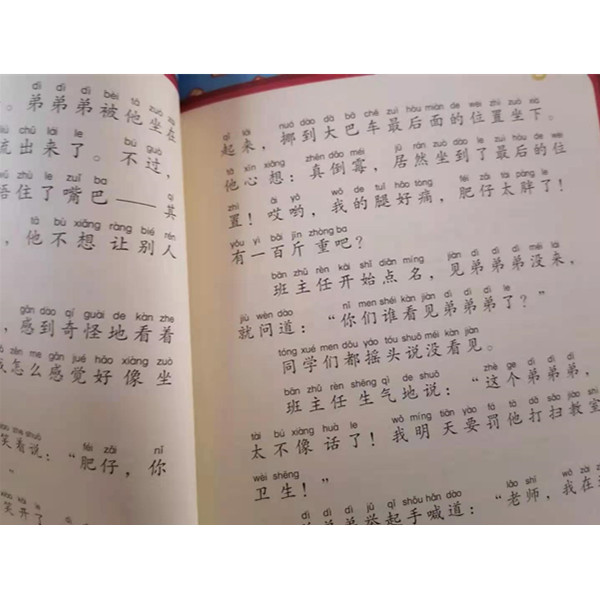 dì dì dì bèi tā zuò zài
。弟弟弟被他坐在
chū lái le bú guò
流出来了。不过，
zhù le zuǐ ba qí
捂住了嘴巴——其
tā bù xiǎng ràng bié rén
，他不想让别人
gǎn dào qí guài de kàn zhe
，感到奇怪地看着
zěn me gǎn jué hǎo xiàng zuò
怎么感觉好像坐
zhe shuō féi zǎi nǐ
笑着说：“肥仔，你
”
笑开了
qǐ lái nuó dào dà bā chē zuì hòu miàn de wèi zhì zuò xià
起来，挪到大巴车最后面的位置坐下。
tā xīn xiǎng zhēn dǎo méi jū rán zuò dào le zuì hòu de wèi
他心想：真倒霉，居然坐到了最后的位
zhì āi yō wǒ de tuǐ hǎo tòng féi zǎi tài pàng le
置！哎哟，我的腿好痛，肥仔太胖了！
yǒu yì bǎi jīn zhòng ba
有一百斤重吧？
bān zhǔ rèn kāi shǐ diǎn míng jiàn dì dì dì méi lái
班主任开始点名，见弟弟弟没来，
jiù wèn dào nǐ men shéi kàn jiàn dì dì dì le
就问道：“你们谁看见弟弟弟了？”
tóng xué men dōu yáo tóu shuō méi kàn jiàn
同学们都摇头说没看见。
bān zhǔ rèn shēng qì de shuō zhè ge dì dì dì
班主任生气地说：“这个弟弟弟，
tài bú xiàng huà le wǒ míng tiān yào fá tā dǎ sǎo jiào shì
太不像话了！我明天要罚他打扫教室
wèi shēng
卫生！”
dì dì dì jǔ qǐ shǒu hǎn dào lǎo shī wǒ zài
弟弟弟举起手喊道：“老师，我在